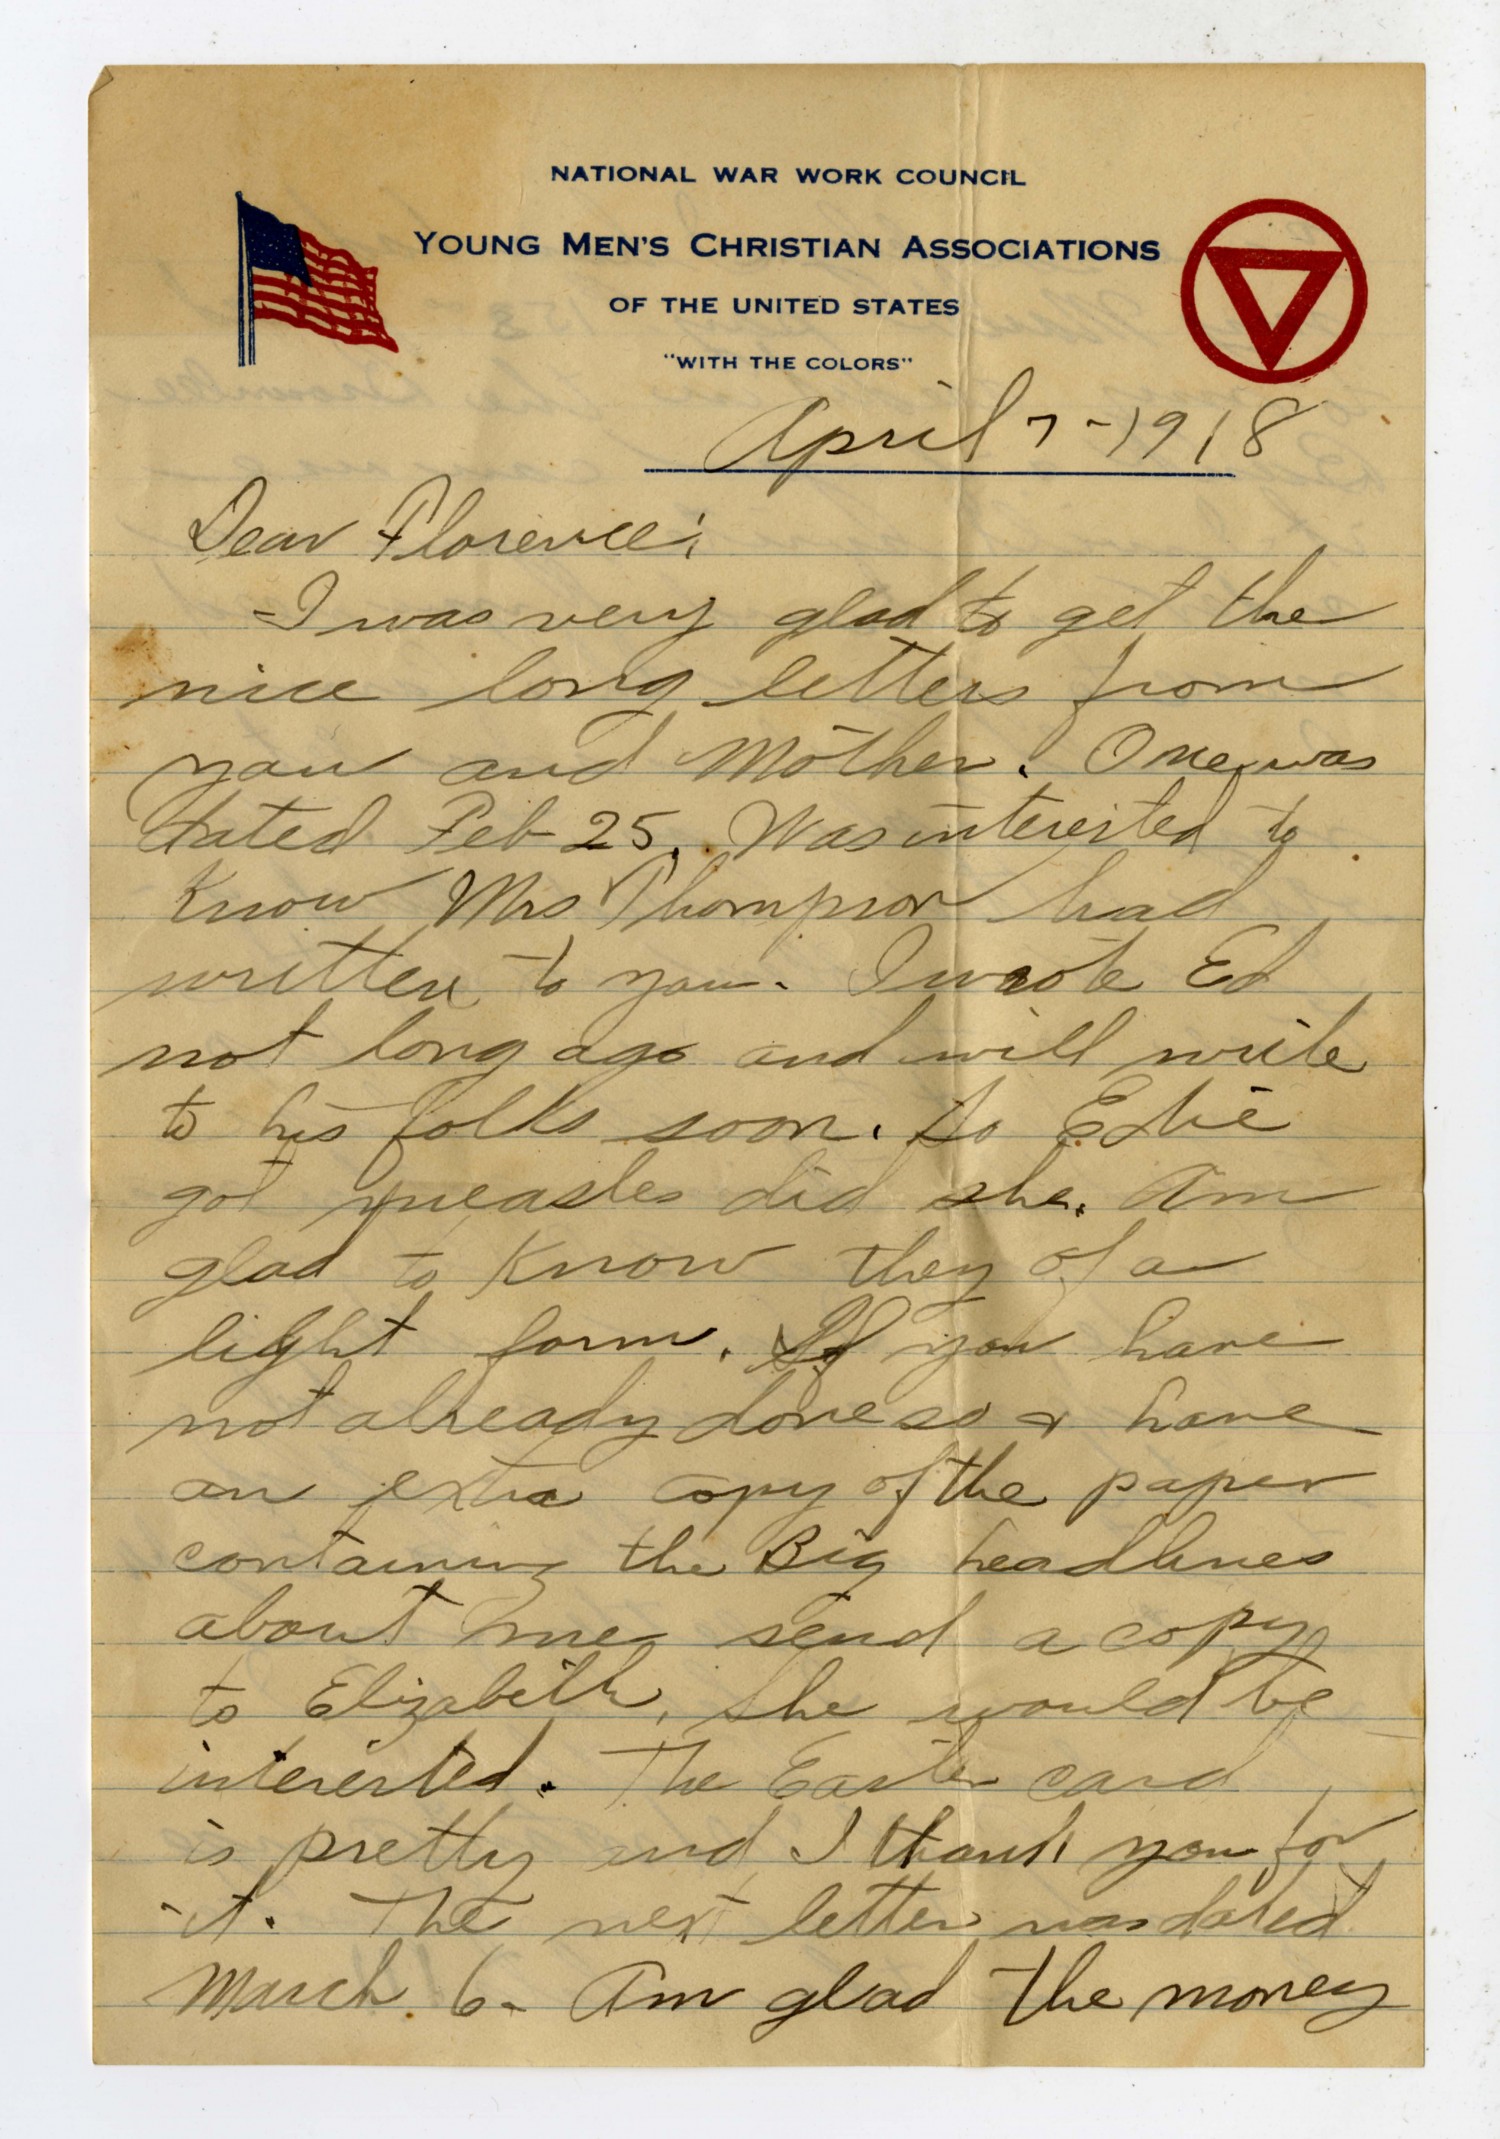 NATIONAL WAR WORK COUNCIL
YOUNG MEN'S CHRISTIAN ASSOCIATIONS
OF THE UNITED STATES
"WITH THE COLORS"
April 7-1918
Dear Florence;
I was very glad to get the
nice long letters from
you and Mother. One was
dated Feb 25. Was interested to
Know Mrs Thompson had
written to you. I wrote Ed
not long ago and will write
to his folks soon. So
got measles did she. Am
glad to Know they of a
light form. If you have
not already done so & have
an extra copy of the paper
containing the Big headlines
about me send a copy
to Elizabeth, she would be
interested. The Easter card
is pretty and I thank you for
it. The next letter was dated
March 6. Am glad the money